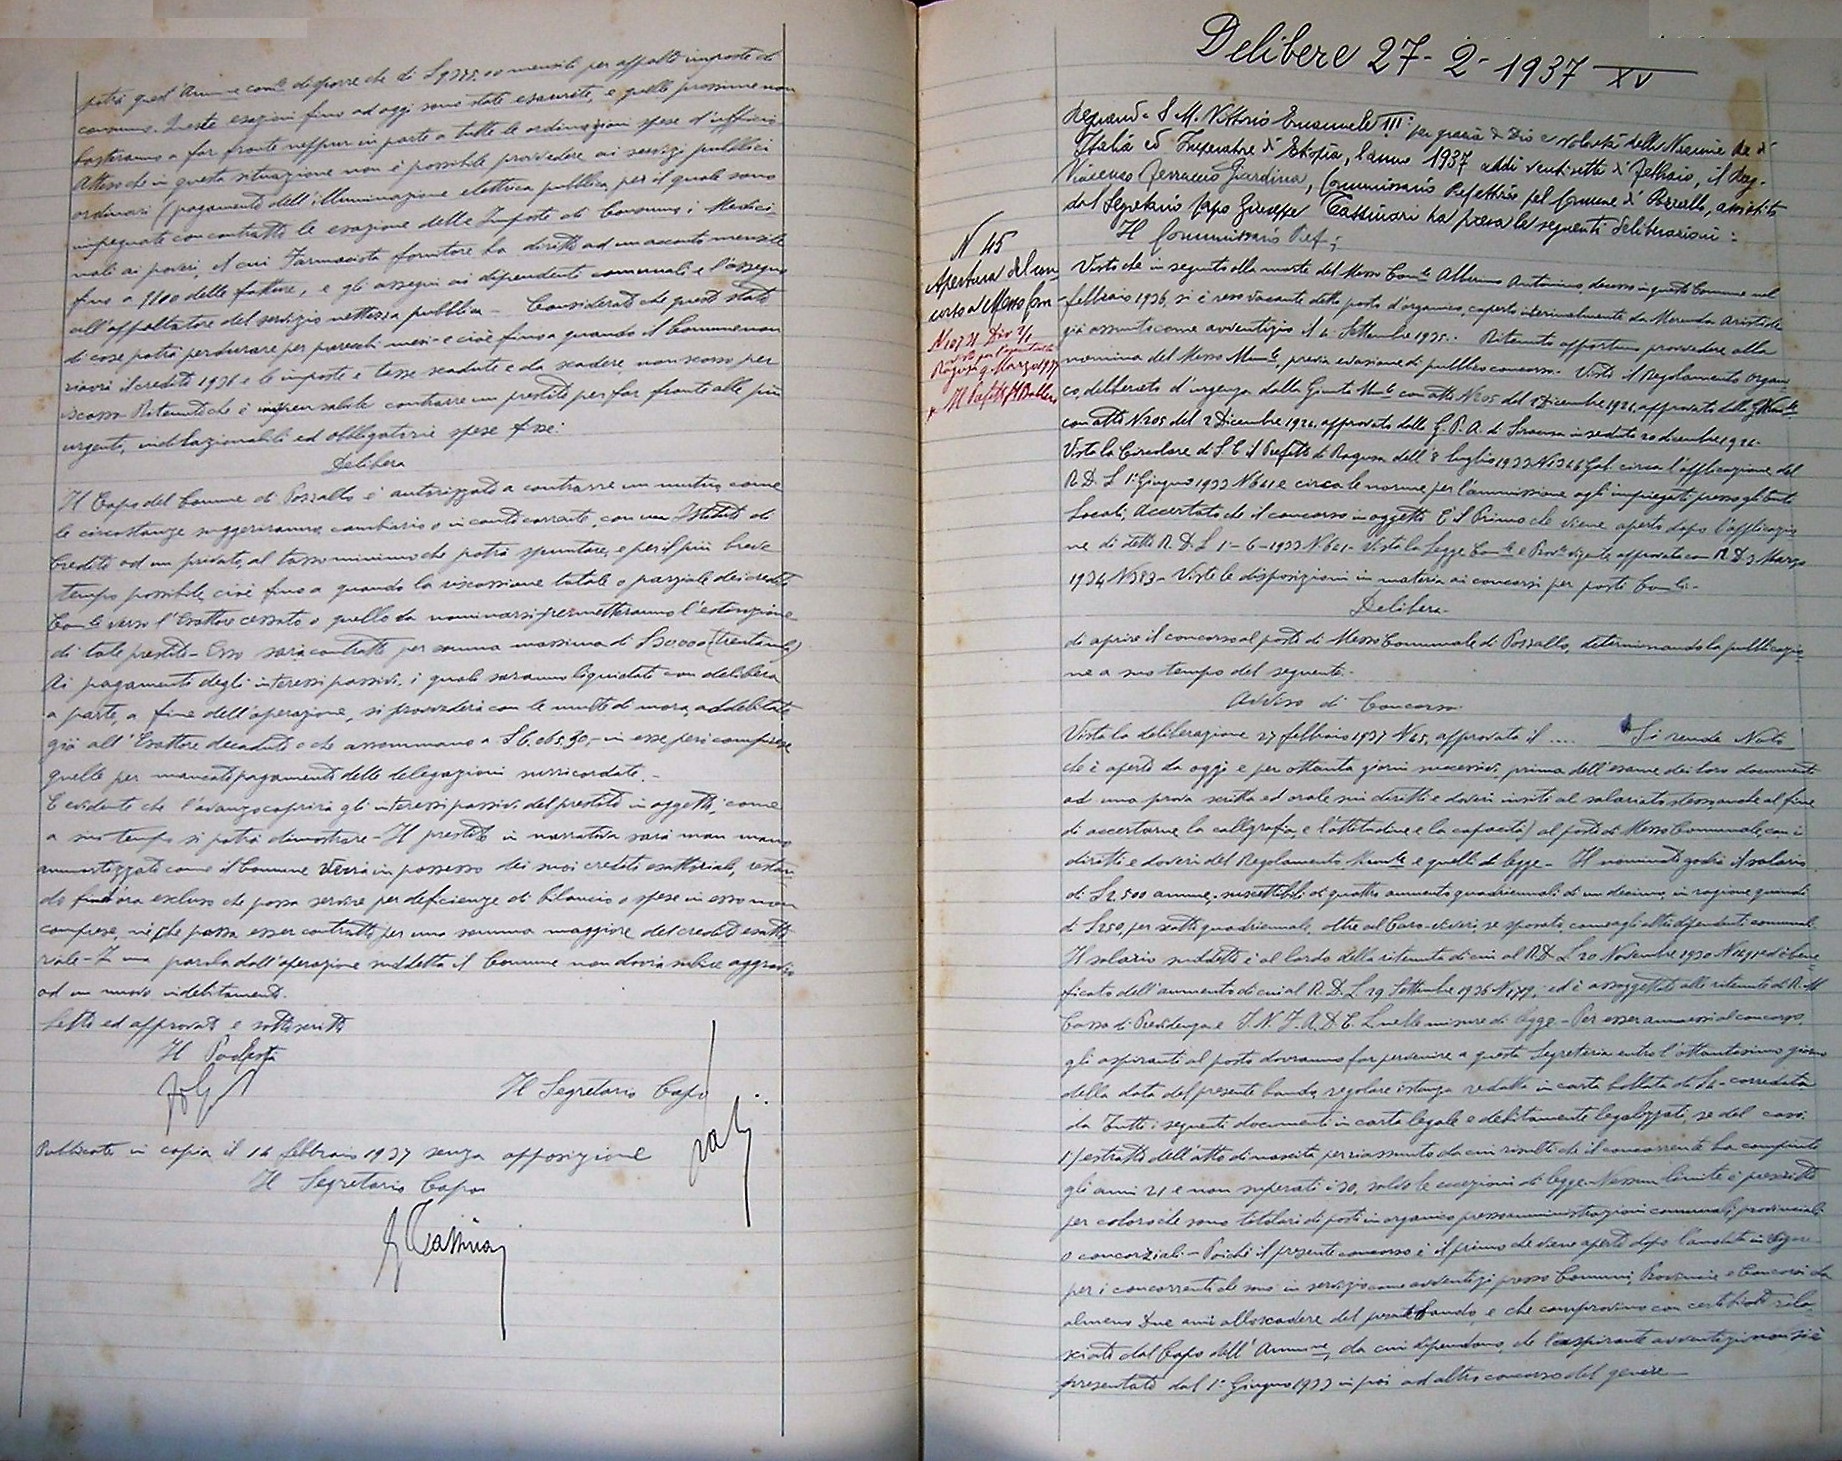 potrà quest'Amm.ne Com.le disporre che di £ 9375.00 mensili per appalto imposte di
consumo. Queste esazioni fino ad oggi sono state esaurite, e quelle prossime non
basteranno a far fronte neppur in parte a tutte le ordinazioni spese d'ufficio
Attesoché in questa situazione non è possibile provvedere ai servizi pubblici
ordinari (pagamento dell'illuminazione elettrica pubblica, per il quale sono
impegnate con contratto le esazione delle Imposte di Consumo, i Medici-
nali ai poveri, il cui Farmacista fornitore ha diritto ad un acconto mensile
fino a 9/100 delle fatture, e gli assegni ai dipendenti comunali e l'assegno
all'appaltatore del servizio nettezza pubblica - Considerato che questo stato
di cose potrà perdurare per parecchi mesi - e cioè fino a quando il Comune non
riavrà il credito 1936 e le imposte e tasse scadute e da scadere non scosso per
scossa. Ritenuto che è indispensabile contrarre un prestito per far fronte alle più
urgenti, indilazionabili ed obbligatorie spese fisse:
Delibera
Il Capo del Comune di Pozzallo è autorizzato a contrarre un mutuo, come
le circostanze suggeriranno, cambiario o in conto corrente, con un Istituto di
Credito od un privato, al tasso minimo che potrà spuntare, e per il più breve
tempo possibile, cioè fino a quando la riscossione totale o parziale dei crediti
Com.li verso l'Esattore cessato o quello da nominarsi permetteranno l'estinzione
di tale prestito - Esso sarà contratto per somma massima di £ 30000 (trentamila)
Ai pagamento degli interessi passivi, i quali saranno liquidati con delibera
a parte, a fine dell'operazione, si provvederà con le multe di mora, addebitate
già all'Esattore decaduto e che assommano a £ 6.065,30,- in esse però comprese
quelle per mancato pagamento delle delegazioni surricordate. -
E' evidente che l'avanzo coprirà gli interessi passivi del prestito in oggetto; come
a suo tempo si potrà dimostrare - Il prestito in narrativa sarà man mano
ammortizzato come il Comune verrà in possesso dei suoi crediti esattoriale, restan-
do fin d'ora escluso che possa servire per deficienze di bilancio o spese in esso non
comprese, nè che possa esser contratto per una somma maggiore del credito esatto-
riale - In una parola dall'operazione suddetta il Comune non dovrà subire aggravio
ad un nuovo indebitamento.
Letto ed approvato e sottoscritto
Il Podestà
Il Segretario Capo
Pubblicato in copia il 14 febbraio 1937 senza opposizione
Il Segretario Capo
G Cassina
Delibere 27-2-1937 XV
Regnando S M. Vittorio Emanuele III° per grazia di Dio e Volontà della Nazione Re d'
Italia ed Imperatore d'Etiopia, l'anno 1937 addì ventisette di Febbraio, il Rag.
Vincenzo Ferruccio Giardina, Commissario Prefettizio pel Comune di Pozzallo, assistito
dal Segretario Capo Giuseppe Cassinari ha preso le seguenti deliberazioni:
Il Commissario Pref.;
N 45
Apertura del con
corso a Messo Com
Ragusa 9. Marzo 1937
Visto che in seguito alla morte del Messo Com.le Alberino Antonino, decesso in questo Comune nel
febbraio 1936, si è reso vacante detto posto d'organico, coperto interinalmente da Merenda Aristide
già assunto come avventizio il 4 Settembre 1935. Ritenuto opportuno provvedere alla
nomina del Messo Mun.le, previa evasione di pubblico concorso - Visto il Regolamento organi-
co, deliberato d'urgenza dalla Giunta Mun.le con atto N 205 del 2 Dicembre 1926, approvato dalla
con atto N 205 del 2 Dicembre 1926, approvato dalla G. P. A. di Siracusa in seduta 20 dicembre 1926 -
Vista la Circolare di S. E il Prefetto di Ragusa dell'8 luglio 1933 N 1346 Gab. circa l'applicazione del
R. D. L 1° Giugno 1933 N 641 e circa le norme per l'ammissione agli impiegati presso gli Enti
Locali, Accertato che il concorso in oggetto è il Primo che viene aperto dopo l'applicazio
ne di detto R. D. L 1-6-1933 N 641 - Vista la Legge Com.le e Prov.le vigente, approvata con R. D. 3 Marzo
1934 N 383 - Viste le disposizioni in materia ai concorsi per posti Com.li -
Delibera -
di aprire il concorso al posto di Messo Comunale di Pozzallo, determinando la pubblicazio-
ne a suo tempo del seguente -
Avviso di Concorso
Vista la deliberazione 27 febbraio 1937 N 45, approvata il .... Si rende Noto
che è aperto da oggi e per ottanta giorni successivi, prima dell'esame dei loro documenti
ad una prova scritta ed orale sui diritti e doveri insiti al salariato stesso, anche al fine
di accertarne la calligrafia e l'attitudine e la capacità) al posto di Messo Comunale, con i
diritti e doveri del Regolamento Mun.le e quelli di legge - Il nominato godrà il salario
di £ 2.500 annue, suscettibili di quattro aumenti quadriennali di un decimo, in ragione quindi
di £ 250, per scatto quadriennale, oltre al Caro-viveri, se sposato, come agli altri dipendenti comunali.
Il salario suddetto è al lordo della ritenuta di cui al R. D. L 20 Novembre 1930 N 1491 ed è bene-
ficato dell'aumento di cui al R. D. L 29 Settembre 1936 N 1719; ed è assoggettato alle ritenute di R. M
Cassa di Previdenza e I. N. F. A. D. E. L nelle misure di legge - Per esser ammessi al concorso,
gli aspiranti al posto dovranno far pervenire a questa Segreteria entro l'ottantesimo giorno
della data del presente bando, regolare istanza redatta in carta bollata da £ 4 - corredata
da Tutti i seguenti documenti in carta legale e debitamente legalizzati, se del caso:
1°/ estratto dell'atto di nascita per riassunto da cui risulti che il concorrente ha compiuto
gli anni 21 e non superati i 30, salvo le eccezioni di legge - Nessun limite è prescritto
per coloro che sono titolari di posti in organico presso amministrazioni comunali, provinciali
o consorziali. - Poiché il presente concorso è il primo che viene aperto dopo l'andata in vigore
per i concorrenti che sono in servizio come avventizi presso Comuni, Provincie e Consorzi da
almeno Due anni allo scadere del presente bando, e che comprovino con certificato rila-
sciato dal Capo dell'Amm.ne, da cui dipendono, che l'aspirante avventizio non si è
presentato dal 1° Giugno 1933 in poi ad altro concorso del genere -